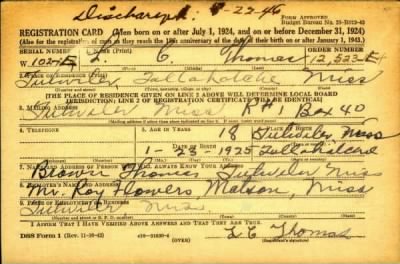 Discharged 22-46
FORM APPROVED
Budget Bureau No. 33-R012-43
REGISTRATION CARD (Men born on or after July 1, 1924, and on or before December 31, 1924)
(Also for the registration of men as they reach the 18th anniversary of the date of their birth on or after January 1, 1943.)
L. C. Thomas 12,523
Tutwiler, Tallahatchie Miss
(THE PLACE OF RESIDENCE GIVEN ON LINE 2 ABOVE WILL DETERMINE LOCAL BOARD
JURISDICTION; LINE 2 OF REGISTRATION CERTIFICATE WILL BE IDENTICAL)
3. MAILING ADDRESS
Tutwiler Miss Box 40
4. TELEPHONE
5. AGE IN YEARS
18
Tutwiler Miss
DATE OF BIRTH
1-23-1925
Tallahatchie
7. NAME AND ADDRESS OF PERSON WHO WILL ALWAYS KNOW YOUR ADDRESS
Brown Thomas, Tutwiler Miss
8. EMPLOYER'S NAME AND ADDRESS
Mr. Roy Flowers, Matson, Miss
9. PLACE OF EMPLOYMENT OR BUSINESS
Tutwiler Miss
I AFFIRM THAT I HAVE VERIFIED ABOVE ANSWERS AND THAT THEY ARE TRUE.
DSS Form 1
(OVER)
L C Thomas
(Registrant's signature)